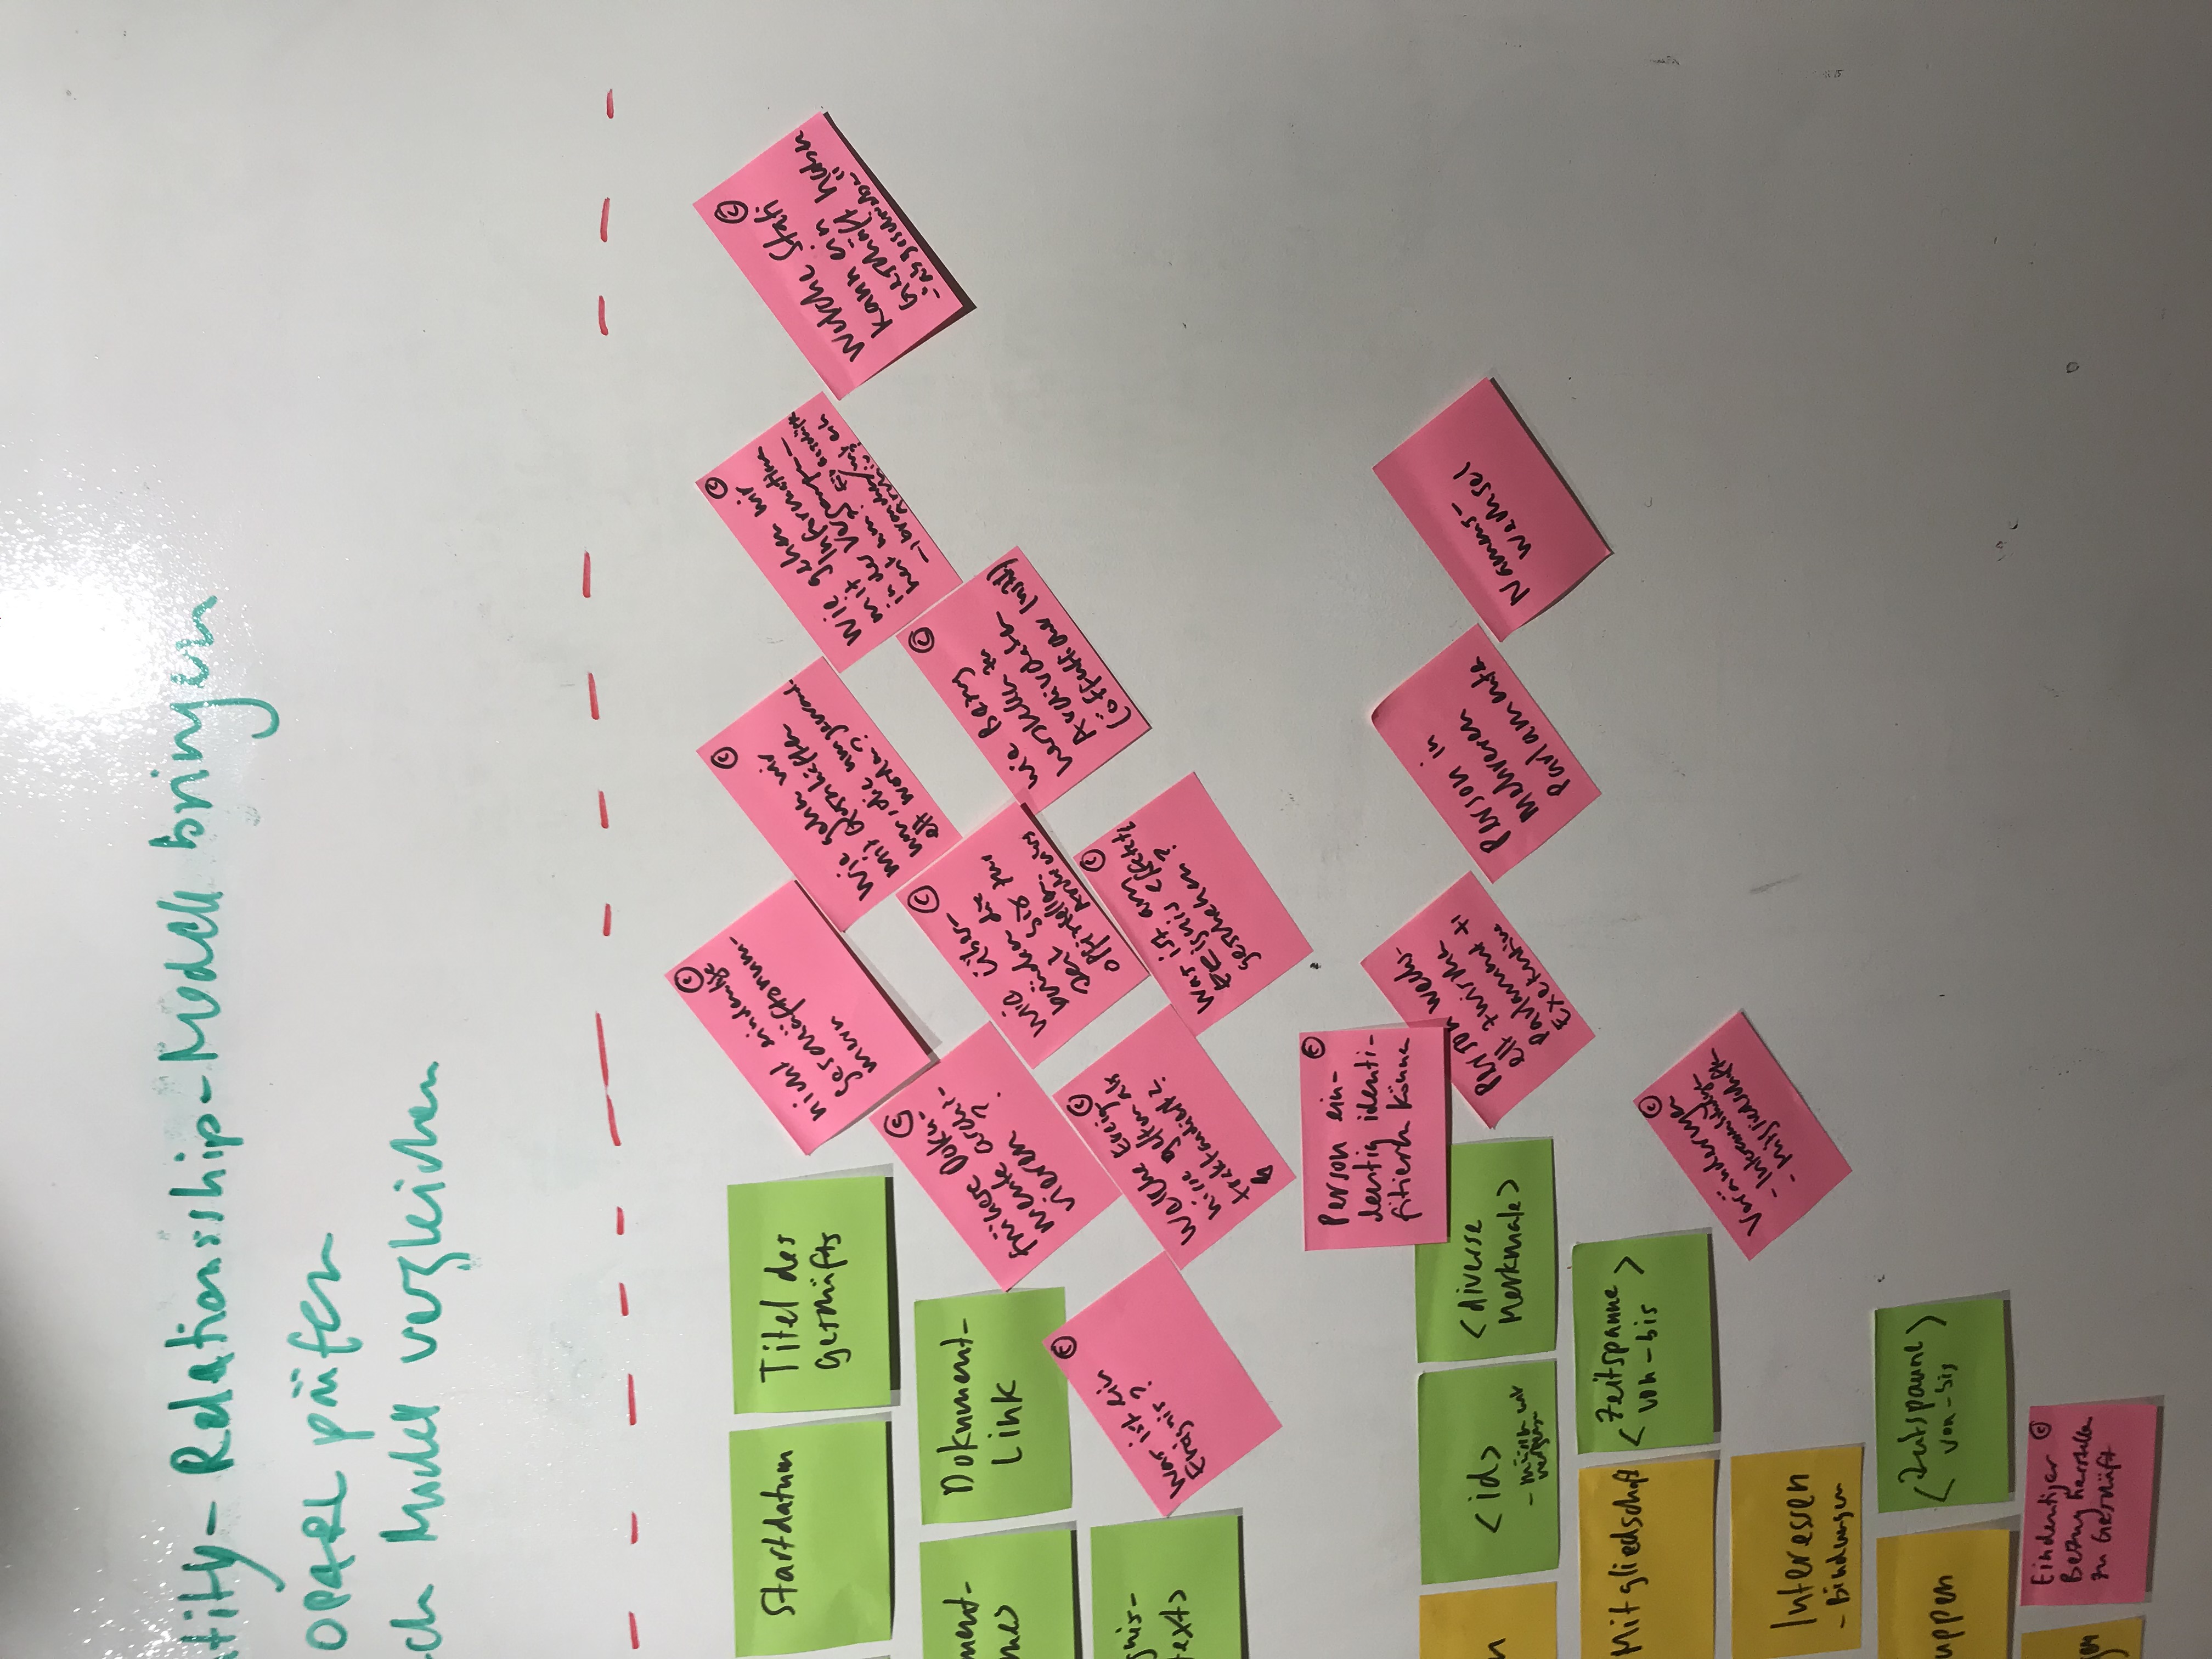 tity-Relationsship-Modell bringen
OPARL prüfen
ch Modell vergleichen
Startdatum
Titel des
Geschäfts
©
nicht eindeutige
Geschäftsnum-
mern
©
Wie gehen wir
mit Geschäften
um, die umgewand-
elt werden?
©
Wie gehen wir
mit Information
in der Vergangen-
heit um
©
Welche Stati
kann ein
Geschäft haben
- "abgeschrieben"
ment-
Dokument-
Link
©
frühere Doku-
mente archi-
vieren?
©
Wie über-
brücken die
Zeit bis zur
offiziellen
Archivierung
©
Wie Bezug
herstellen zu
Archivdaten
(öffentlicher
gnis-
text>
©
Was ist ein
Ereignis?
©
Welche Ereig-
nisse gelten als
traktandiert?
©
Was ist am
Ereignis effektiv
geschehen?
©
Person ein-
deutig identi-
fizieren können
n
<id>
<diverse
Merkmale>
Person wechs-
elt zwischen
Parlament +
Exekutive
Person in
Mehreren
Parlamente
Namens-
wechsel
Mitgliedschaft
<Zeitspanne
von-bis>
©
Veränderungen
- Interessenbindungen
- Mitgliedschaften
Interessen
- Bindungen
uppen
<Zeitspanne
von-bis>
gen
Eindeutiger ©
Bezug herstellen
zu Geschäft